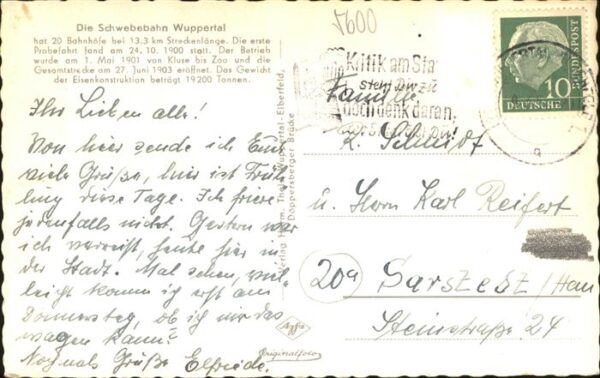 Die Schwebebahn Wuppertal
hat 20 Bahnhöfe bei 13,3 km Streckenlänge. Die erste
Probefahrt fand am 24. 10. 1900 statt. Der Betrieb
wurde am 1. Mai 1901 von Kluse bis Zoo und die
Gesamtstrecke am 27. Juni 1903 eröffnet. Das Gewicht
der Eisenkonstruktion beträgt 19200 Tonnen.
Ihr Lieben alle!
Von hier sende ich Euch
viele Grüße, hier ist Früh-
ling diese Tage. Ich friere
jedenfalls nicht. Gestern war
ich verreist, heute hier in
der Stadt. Mal sehen, viel-
leicht komm ich erst am
Donnerstag, ob ich mir das
wagen kann?
Nochmals Grüße Elfriede.
Wuppertal-Elberfeld,
Döppersberger Brücke
Agfa
Originalfoto
7600
Kritik am Sta
steh
noch denk daran,
10
DEUTSCHE
BUNDESPOST
Familie
K. Schmidt
u. Herrn Karl Reifert
20a Sarstedt/Han
Steinstraße 24